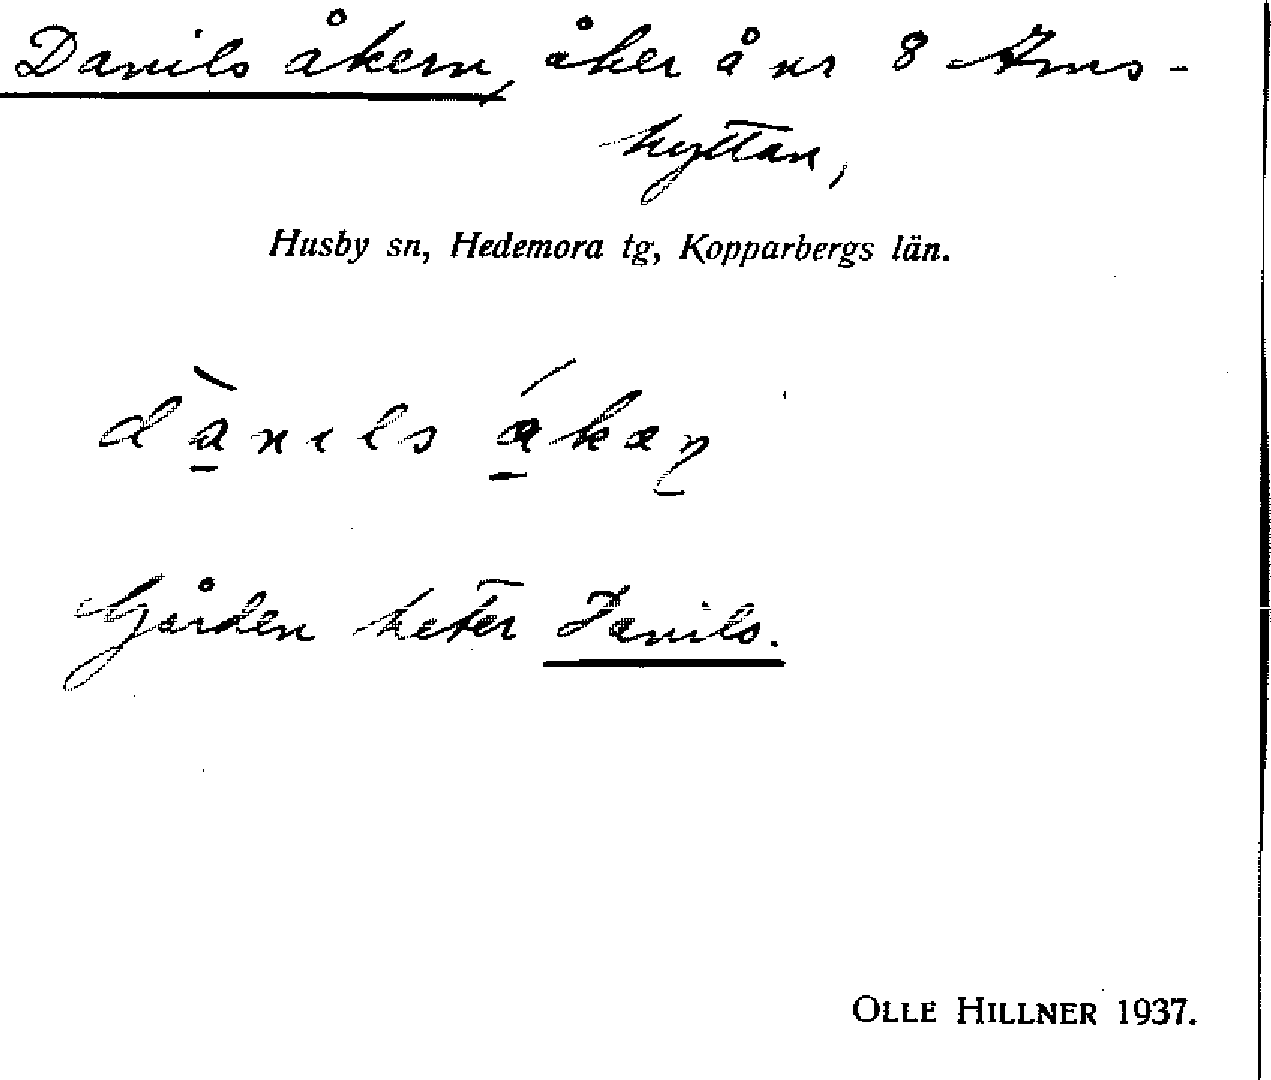 Danils åkern, åker å nr 8 Ams-
hyttan,
Husby sn, Hedemora tg, Kopparbergs län.
dànils ákaɳ
Gården heter Danils.
OLLE HILLNER 1937.